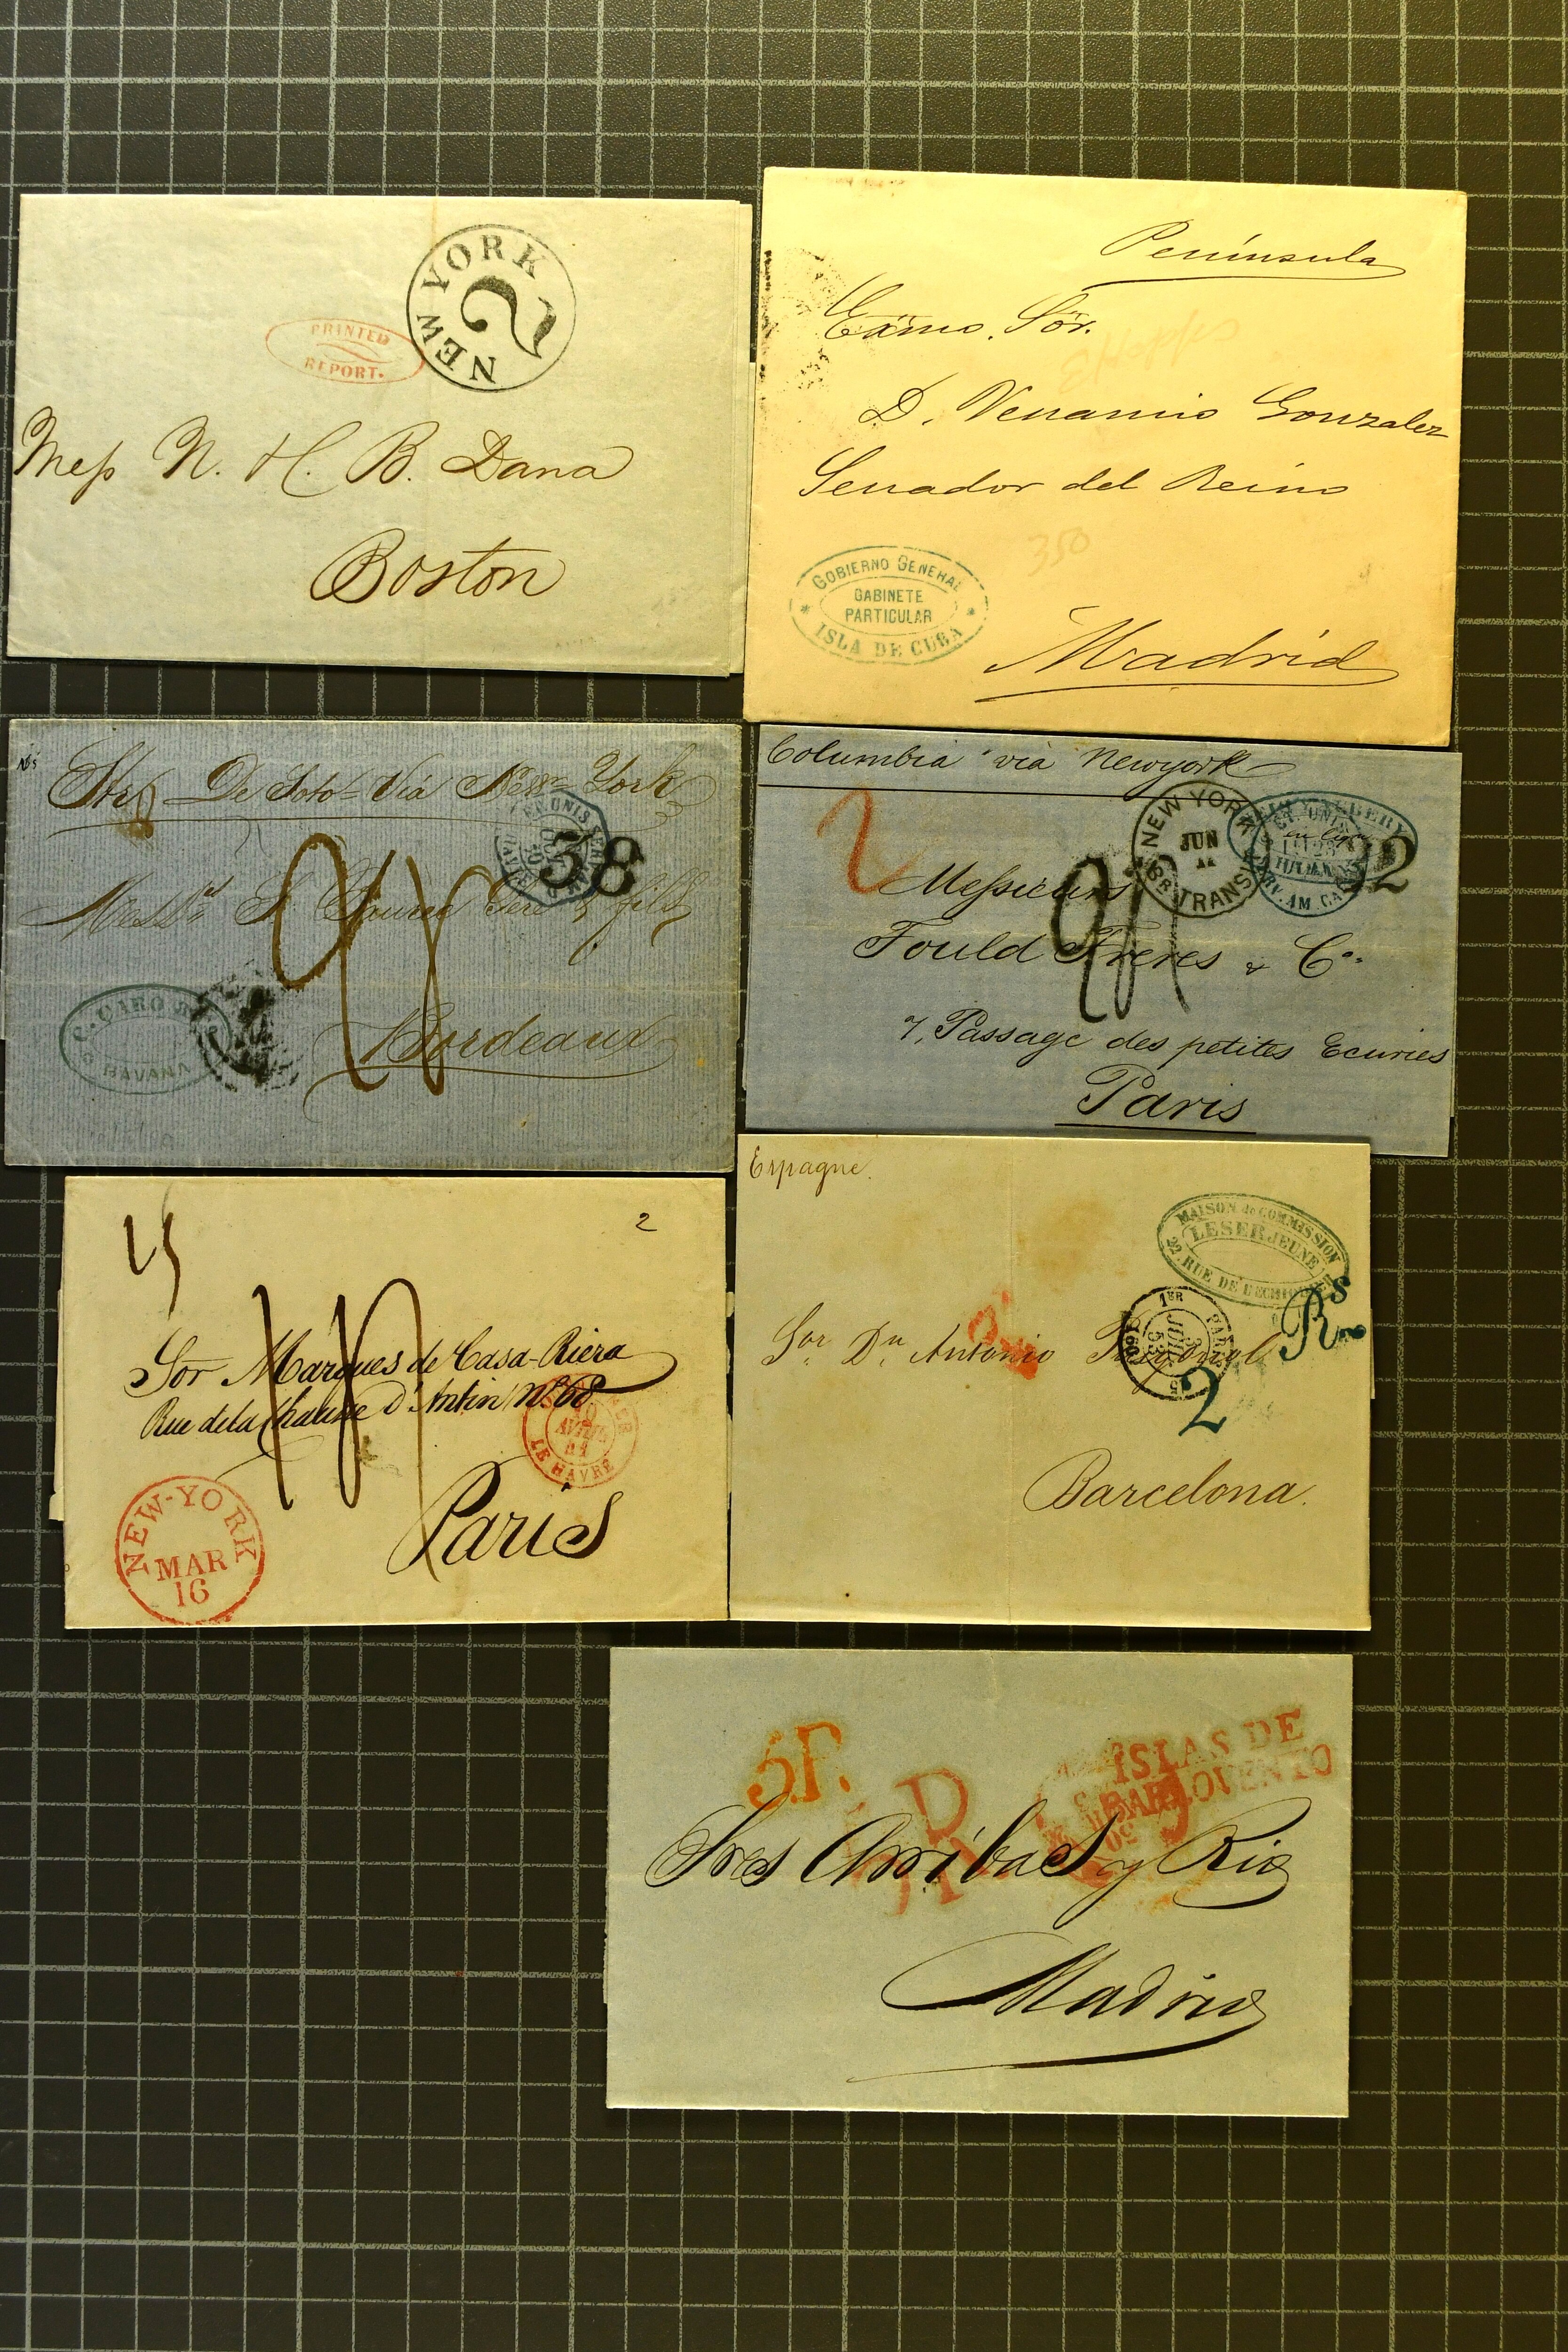 NEW YORK
2
PRINTED
REPORT.
Mess N. & H. B. Dana
Boston
Península
Exmo. Sor.
D. Venancio Gonzalez
Senador del Reino
350
GOBIERNO GENERAL
GABINETE
PARTICULAR
ISLA DE CUBA
Madrid
Str De Soto Via New York
38
Père & fils
Bordeaux
C. CARO
HAVANA
Columbia via Newyork
2
NEW YORK
JUN
BR. TRANSIT
Messieurs
Fould Freres & Co.
7, Passage des petites Ecuries
Paris
2
Sor Marques de Casa-Riera
Rue de la Chaussée d'Antin No 68
AVRIL
LE HAVRE
NEW-YORK
MAR
16
Paris
Espagne.
MAISON de COMMISSION
LESER JEUNE
22, RUE DE L'ECHIQUIER
Rs
PARIS
2
Sor Dn Antonio
Barcelona.
5.P.
ISLAS DE
BARLOVENTO
Sres Arribas y Rio
Madrid